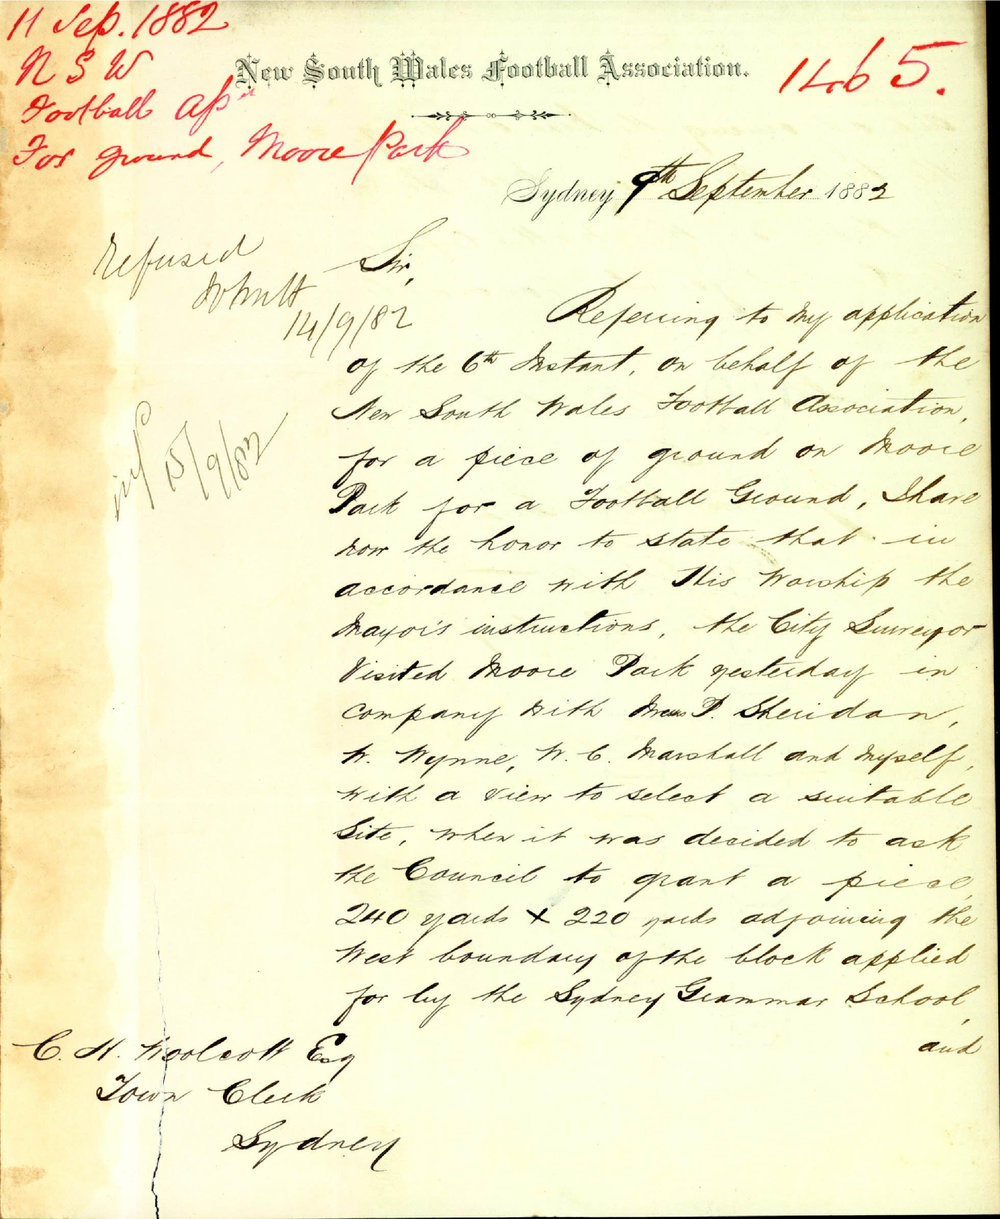 11 Sep. 1882
N S W
Football Assn
For ground, Moore Park
1465.
New South Wales Football Association.
Sydney, 9th September 1882
Refused
14/9/82
inf 15/9/82
Sir,
Referring to my application
of the 6th Instant, on behalf of the
New South Wales Football Association,
for a piece of ground on Moore
Park for a Football Ground, I have
now the honor to state that in
accordance with His Worship the
Mayor's instructions, the City Surveyor
Visited Moore Park yesterday in
company with Messrs P. Sheridan,
W. Wynne, W. C. Marshall and Myself,
with a view to select a suitable
Site, when it was decided to ask
the Council to grant a piece,
240 yards X 220 yards adjoining the
West boundary of the block applied
for by the Sydney Grammar School,
and
C. H. Woolcott Esq
Town Clerk
Sydney